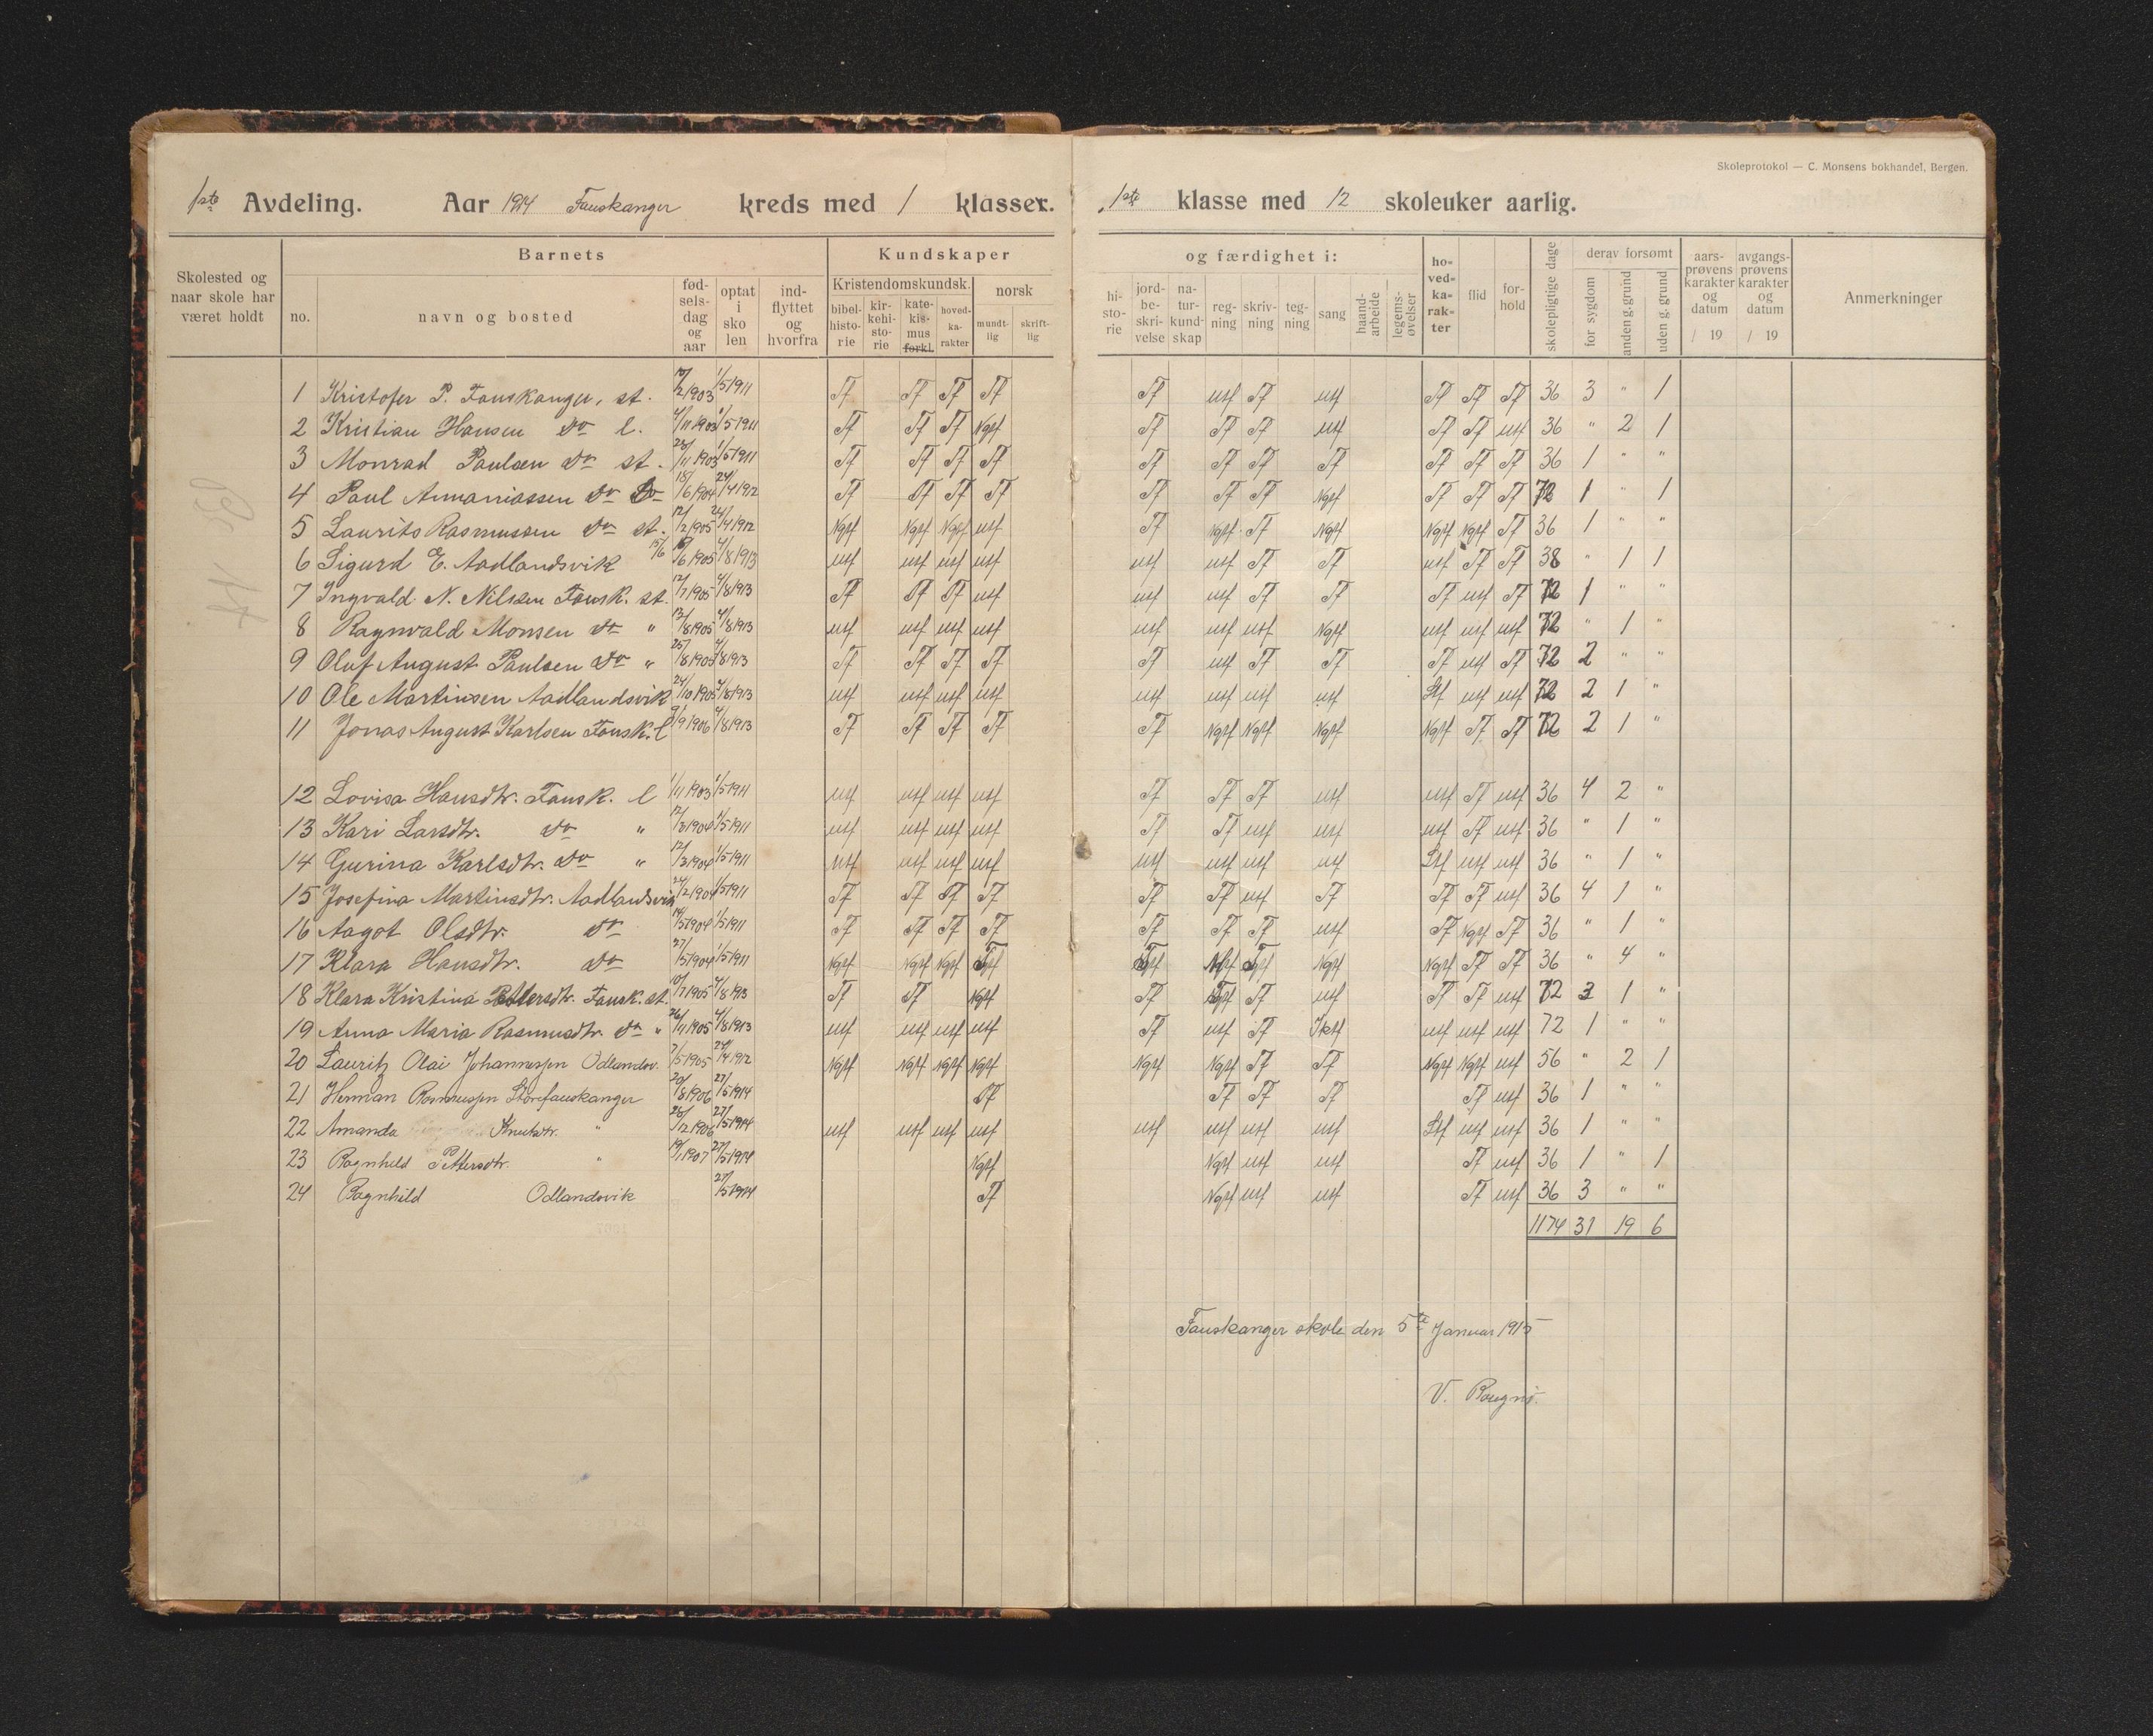 Skoleprotokol — C. Monsens bokhandel, Bergen.
1ste Avdeling. Aar 1914 Fauskanger kreds med 1 klasser.
1ste klasse med 12 skoleuker aarlig.
Skolested og naar skole har været holdt
Barnets
no. navn og bosted fødselsdag og aar optat i skolen indflyttet og hvorfra
Kundskaper og færdighet i:
Kristendomskundsk. bibelhistorie kirkehistorie katekismus forkl. hovedkarakter
norsk mundtlig skriftlig
historie jordbeskrivelse naturkundskap regning skrivning tegning sang haandarbeide legemsøvelser
hovedkarakter flid forhold skolepligtige dage
derav forsømt for sygdom anden g. grund uden g. grund
aarsprøvens karakter og datum / 19
avgangsprøvens karakter og datum / 19
Anmerkninger
1 Kristofer P. Fauskanger, st. 2/1903 1/5 1911 Tf Tf Tf Tf Tf utf Tf utf Tf Tf Tf 36 3 " 1
2 Kristian Hansen do l. 4/11 1903 1/5 1911 Tf Tf Tf Ngtf Tf Tf Tf utf Tf Tf utf 36 " 2 1
3 Monrad Paulsen do st. 23/11 1903 1/5 1911 Tf Tf Tf Tf Tf Tf Tf Tf Tf Tf Tf 36 1 " "
4 Paul Annaniassen do do 18/6 1904 24/4 1912 Tf Tf Tf Tf Tf Tf Tf Ngtf Tf Tf Tf 72 1 " 1
5 Laurits Rasmussen do st. 12/2 1905 24/4 1912 Ngtf Ngtf Ngtf utf Tf Ngtf Tf Ngtf Ngtf Ngtf Tf 36 1 " "
6 Sigurd E. Aadlandsvik 15/6 /6 1905 4/8 1913 utf utf utf utf utf utf Tf Tf utf Tf Tf 38 " 1 1
7 Ingvald N. Nilssen Fausk. st. 12/7 1905 4/8 1913 Tf Tf Tf utf utf utf Tf Tf Tf utf Tf 72 1 " "
8 Ragnvald Monsen do " 13/8 1905 4/8 1913 utf utf utf utf utf utf utf Ngtf utf utf utf 72 " 1 "
9 Olaf August Paulsen do " 25/8 1905 4/8 1913 Tf Tf Tf Tf Tf utf Tf Tf Tf utf Tf 72 2 " "
10 Ole Martinsen Aadlandsvik 24/10 1905 4/8 1913 utf utf utf utf utf utf utf utf Stf utf utf 72 2 1 "
11 Jonas August Karlsen Fausk. l 9/9 1906 4/8 1913 Tf Tf Tf Tf Tf Ngtf Ngtf Ngtf Ngtf Tf Tf 72 2 1 "
12 Lovisa Hansdtr. Fausk. l 1/11 1903 1/5 1911 utf utf utf utf Tf Tf Tf utf utf Tf utf 36 4 2 "
13 Kari Larsdtr. do " 12/3 1904 1/5 1911 utf utf utf utf Tf Tf utf utf utf Tf utf 36 " 1 "
14 Gurina Karlsdtr. do " 12/3 1904 1/5 1911 utf utf utf utf utf utf utf utf Stf utf utf 36 " 1 "
15 Josefina Martinsdtr. Aadlandsvik 24/2 1904 1/5 1911 Tf Tf Tf Tf Tf Tf utf Tf Tf Tf utf 36 4 1 "
16 Aagot Olsdtr. do 14/5 1904 1/5 1911 Tf Tf Tf Tf Tf Tf Tf utf Tf Ngtf Tf 36 " 1 "
17 Klara Hansdtr. do 27/5 1904 1/5 1911 Ngtf Ngtf Ngtf Tf Tf Ngtf Tf Ngtf Ngtf Tf Tf 36 " 4 "
18 Klara Kristina Pettersdtr. Fausk. st. 10/7 1905 4/8 1913 Tf Tf Ngtf Tf Tf Tf utf Tf Tf utf 72 3 1 "
19 Anna Maria Rasmusdtr. do " 26/11 1905 4/8 1913 utf utf utf utf Tf utf Tf Iktf utf utf utf 72 1 " "
20 Lauritz Olai Johannessen Odlandsv. 7/5 1905 24/4 1912 Ngtf Ngtf Ngtf Ngtf Ngtf Ngtf Tf Tf Ngtf Ngtf utf 56 " 2 1
21 Herman Rasmussen Storefauskanger 20/8 1906 27/5 1914 Tf Tf Tf Tf Tf utf 36 1 " "
22 Amanda Knutsdtr. " 26/12 1906 27/5 1914 utf utf utf utf utf utf utf utf Stf utf utf 36 1 " "
23 Ragnhild Pettersdtr. " 19/1 1907 27/5 1914 Ngtf Ngtf utf utf Tf utf 36 1 " 1
24 Ragnhild Odlandsvik 27/5 1914 Tf Ngtf utf utf Tf utf 36 3 " "
1174 31 19 6
Fauskanger skole den 5te Januar 1915
V. Rougnø.